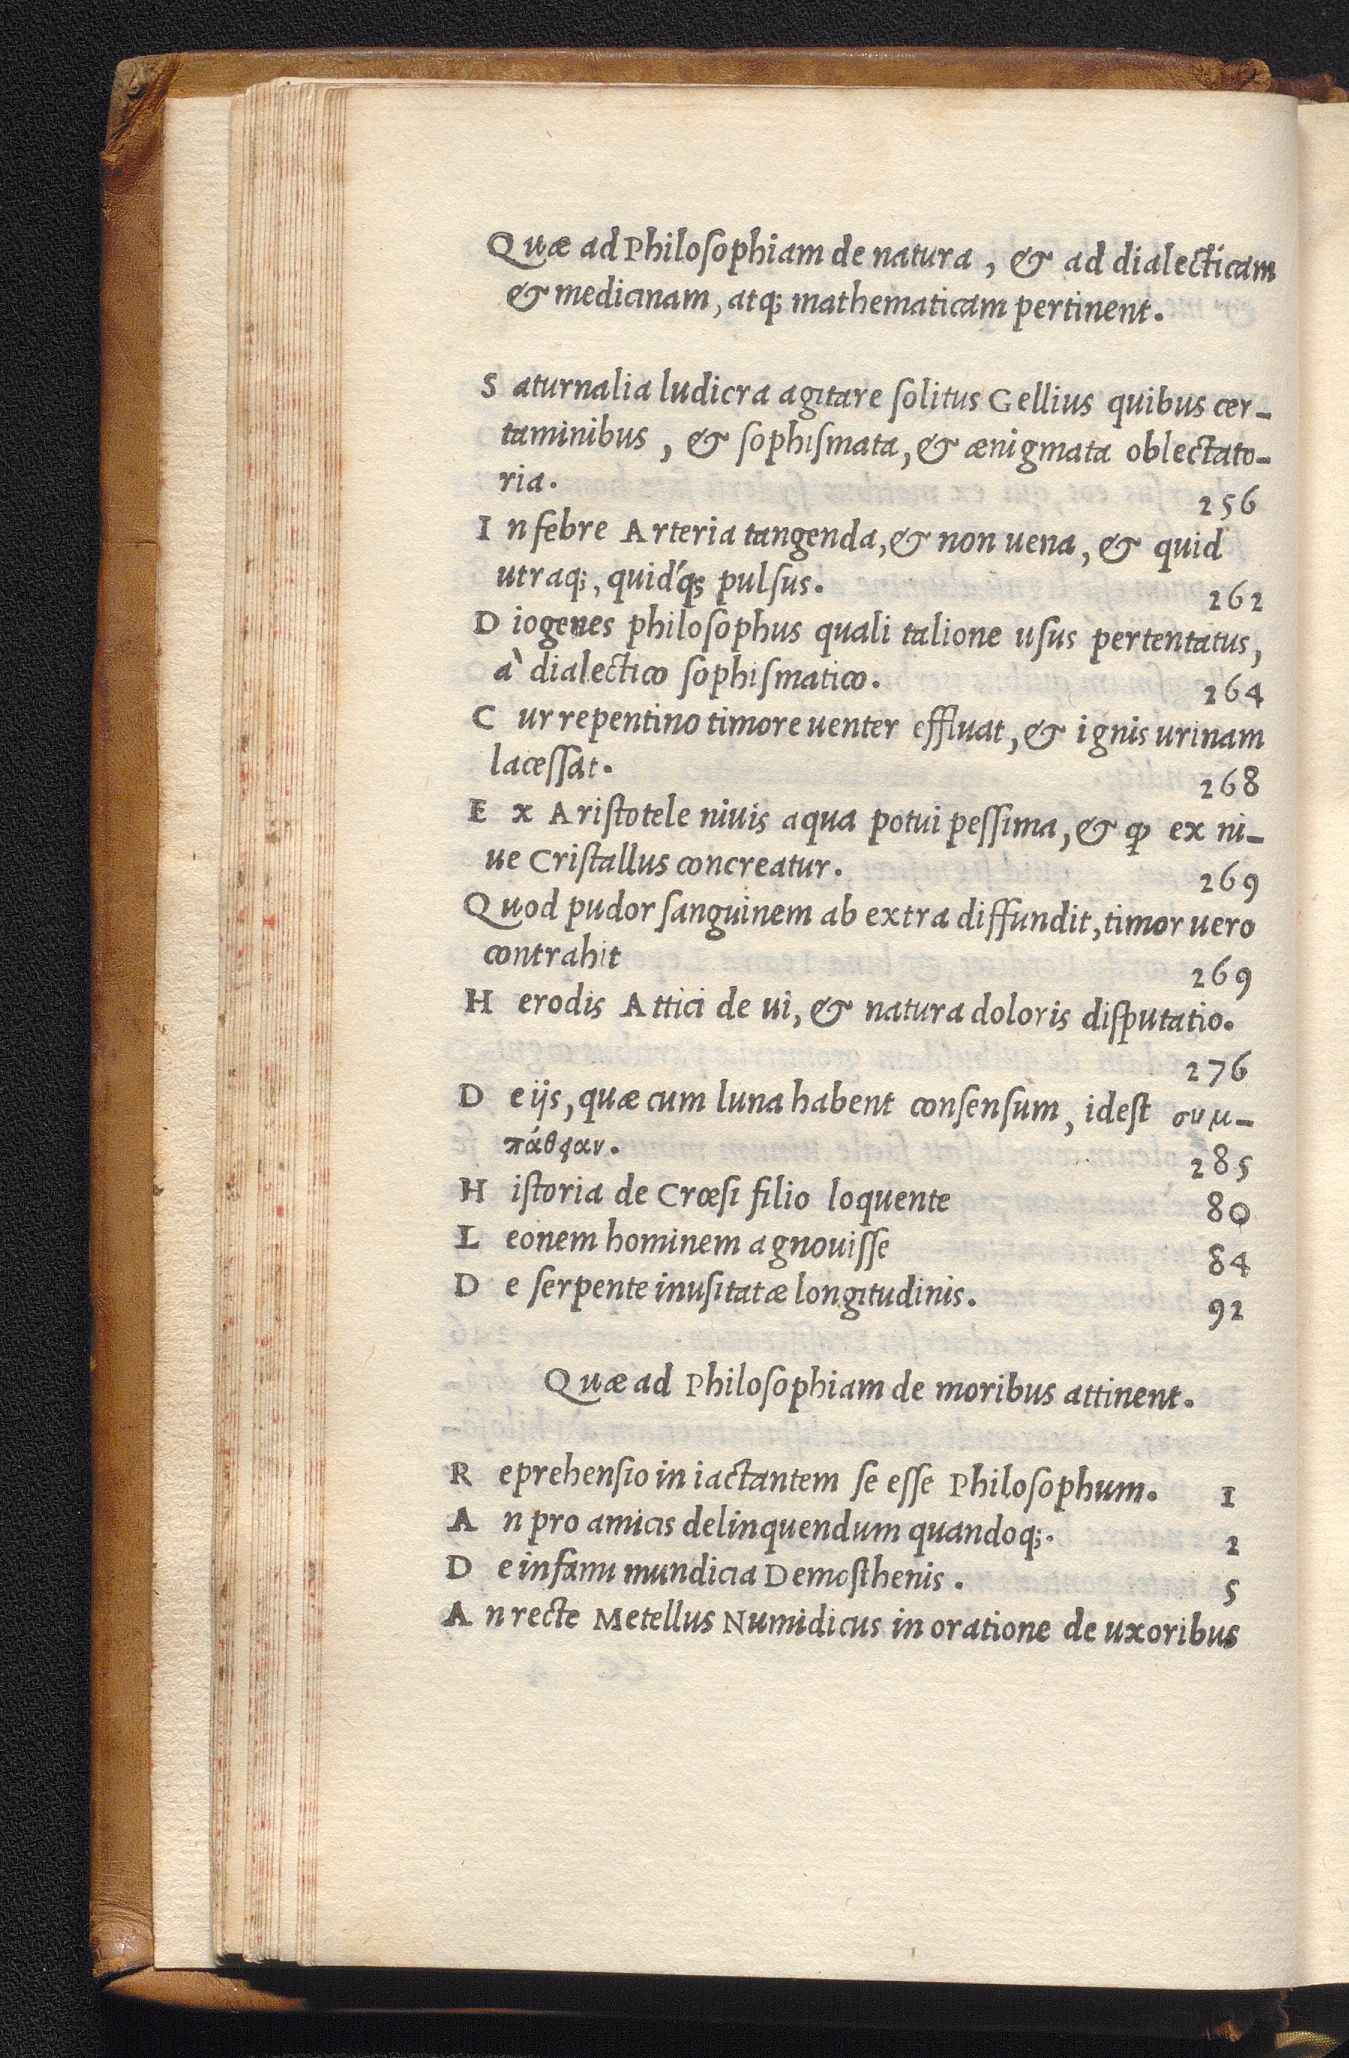 Quæ ad Philosophiam de natura, & ad dialecticam
& medicinam, atq; mathematicam pertinent.
S aturnalia ludicra agitare solitus Gellius quibus cer-
taminibus, & sophismata, & ænigmata oblectato-
ria. 256
I n febre Arteria tangenda, & non uena, & quid
utraq;, quid'q; pulsus. 262
D iogenes philosophus quali talione usus pertentatus,
à dialectico sophismatico. 264
C ur repentino timore uenter effluat, & ignis urinam
lacessat. 268
E x Aristotele niuis aqua potui pessima, & ꝙ ex ni-
ue Cristallus concreatur. 269
Quod pudor sanguinem ab extra diffundit, timor uero
contrahit 269
H erodis Attici de ui, & natura doloris disputatio.
276
D e ijs, quæ cum luna habent consensum, idest συμ-
πάθειαν. 285
H istoria de Crœsi filio loquente 80
L eonem hominem agnouisse 84
D e serpente inusitatæ longitudinis. 92
Quæ ad Philosophiam de moribus attinent.
R eprehensio in iactantem se esse Philosophum. 1
A n pro amicis delinquendum quandoq;. 2
D e infami mundicia Demosthenis. 5
A n recte Metellus Numidicus in oratione de uxoribus